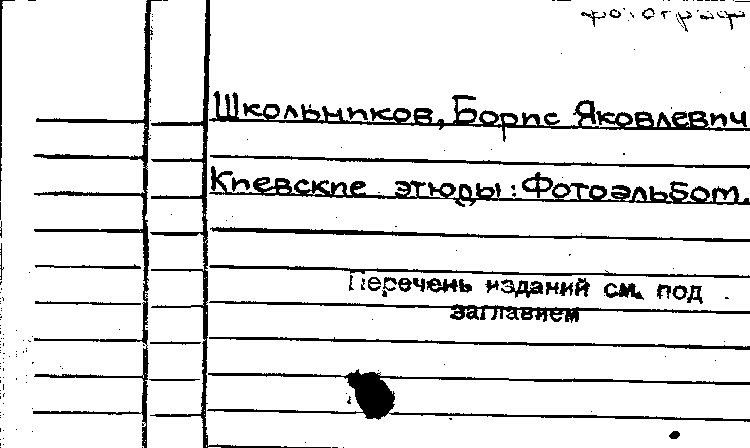 фотограф
Школьников, Борис Яковлевич
Киевские этюды: Фотоальбом.
Перечень изданий см. под
заглавием